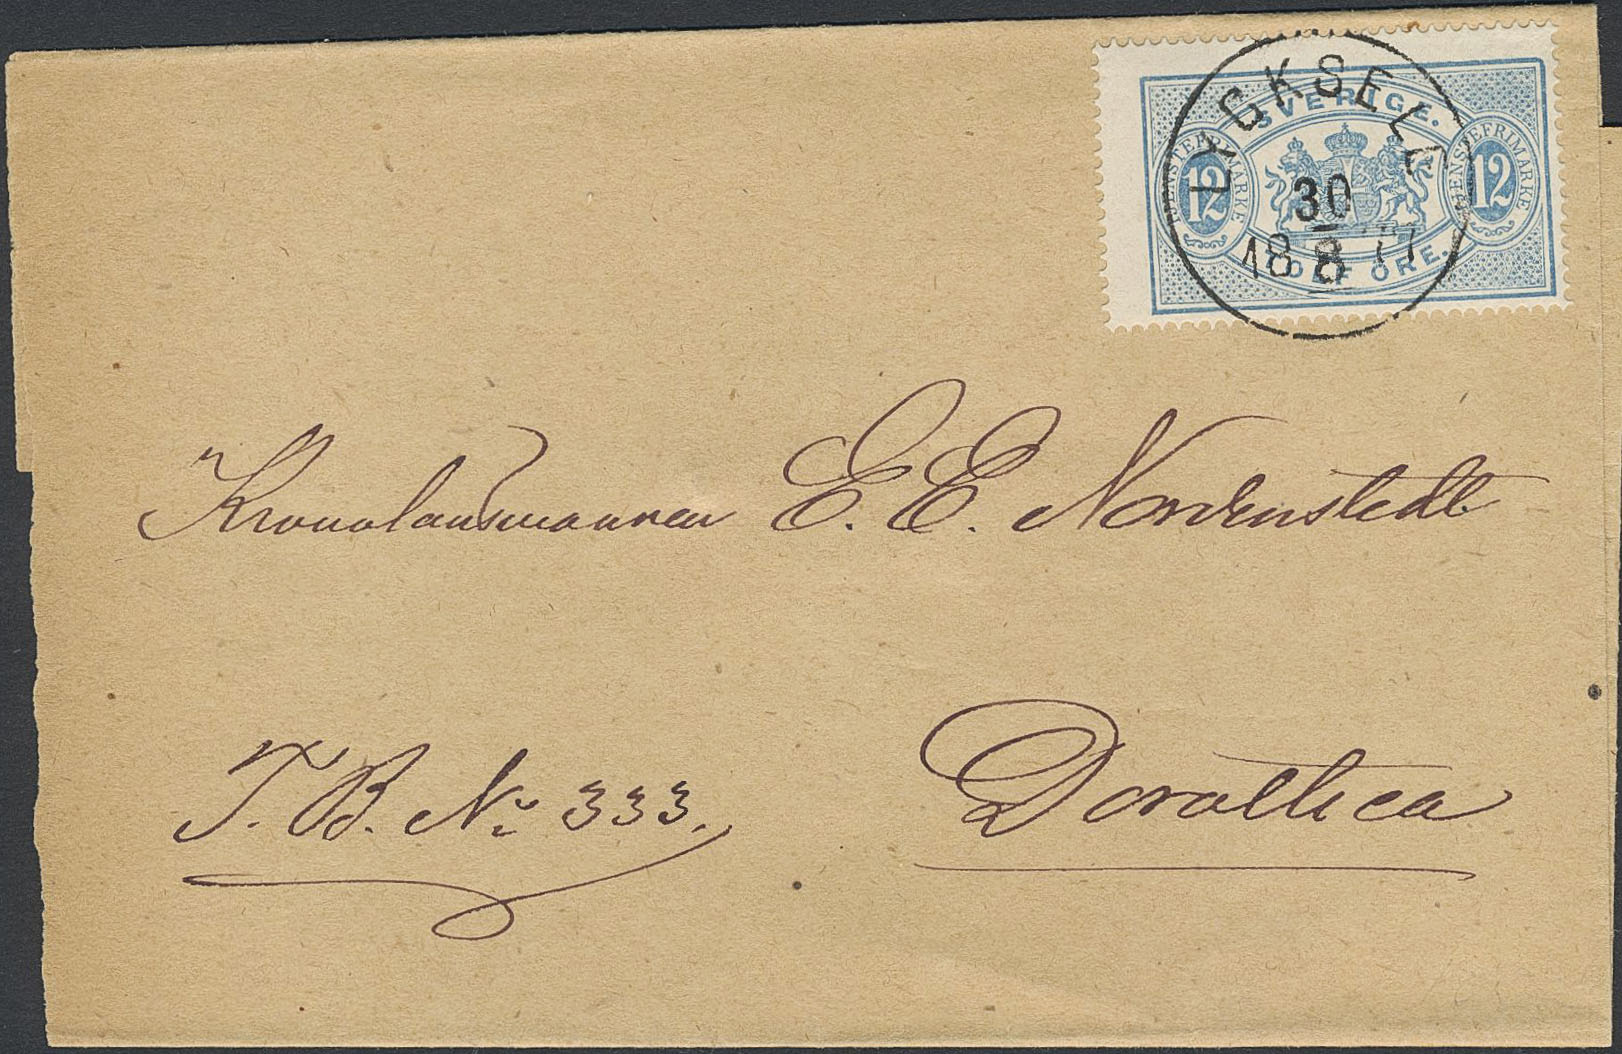 SVERIGE.
TJENSTEFRIMARKE 12
TJENSTEFRIMARKE 12
TOLF ÖRE.
LYCKSELE
30
1888 77
Kronolänsmannen E. E. Nordenstedt
T. B. No 333. Dorothea